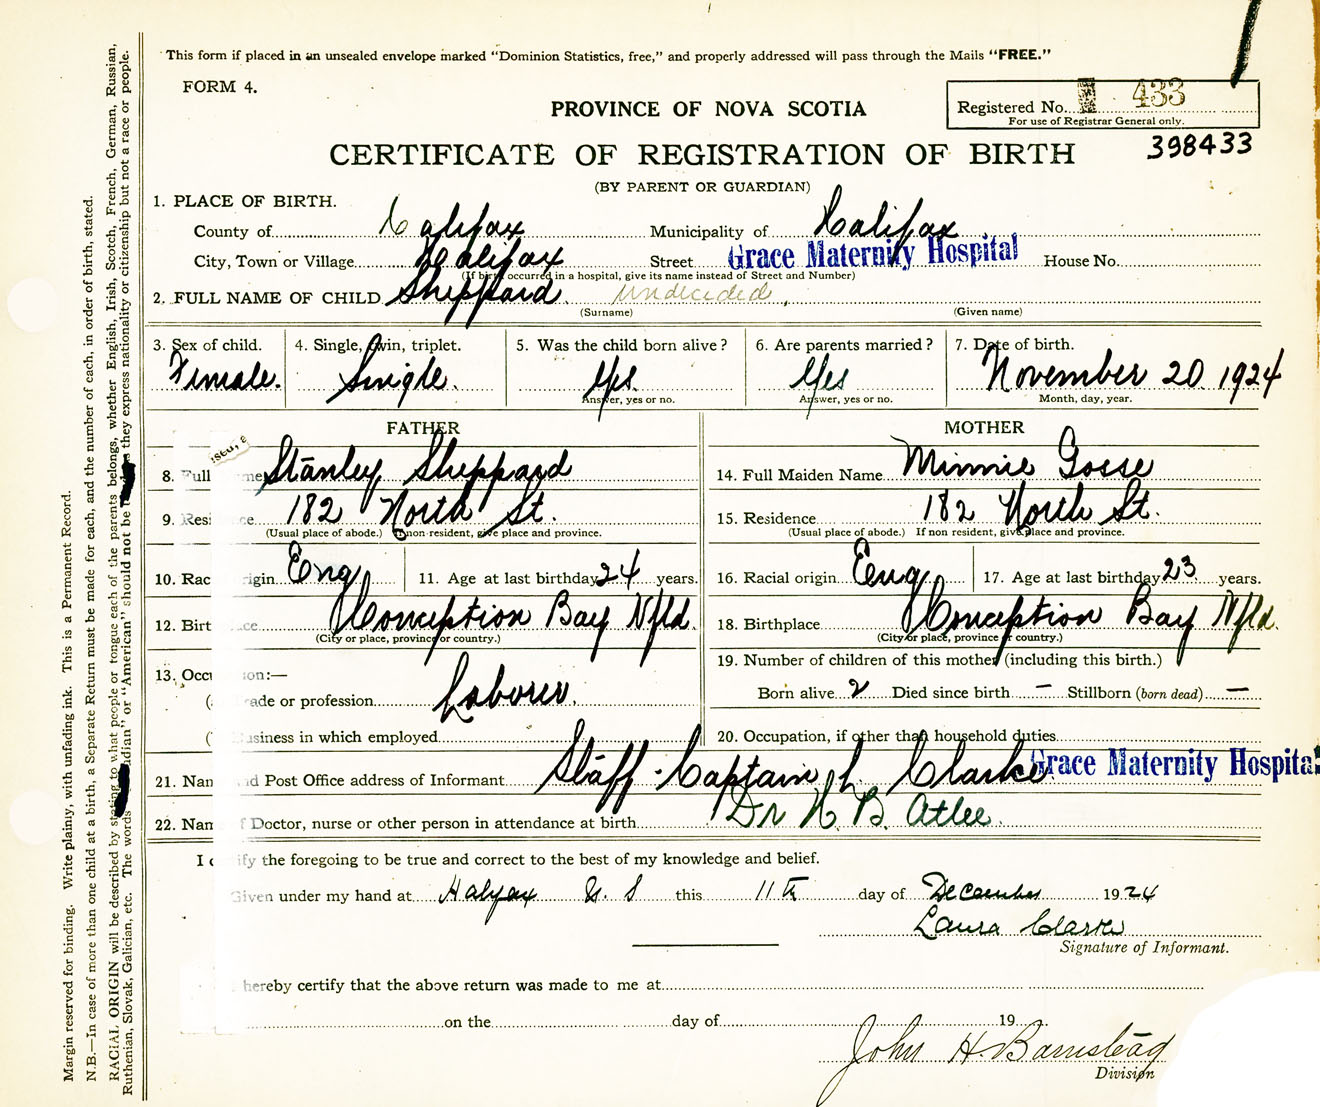 This form if placed in an unsealed envelope marked "Dominion Statistics, free," and properly addressed will pass through the Mails "FREE."
FORM 4.
PROVINCE OF NOVA SCOTIA
Registered No. 433
For use of Registrar General only.
398433
CERTIFICATE OF REGISTRATION OF BIRTH
(BY PARENT OR GUARDIAN)
1. PLACE OF BIRTH.
County of Halifax Municipality of Halifax
City, Town or Village Halifax Street Grace Maternity Hospital House No.
(If birth occurred in a hospital, give its name instead of Street and Number)
2. FULL NAME OF CHILD Sheppard undecided
(Surname) (Given name)
3. Sex of child. 4. Single, twin, triplet. 5. Was the child born alive? 6. Are parents married? 7. Date of birth.
Female. Single. Yes Yes November 20 1924
Answer, yes or no. Answer, yes or no. Month, day, year.
FATHER MOTHER
8. Full me Stanley Sheppard 14. Full Maiden Name Minnie Gosse
9. Resi ce 182 North St. 15. Residence 182 North St.
(Usual place of abode.) If non-resident, give place and province. (Usual place of abode.) If non resident, give place and province.
10. Rac igin Eng 11. Age at last birthday 24 years. 16. Racial origin Eng 17. Age at last birthday 23 years.
12. Birt ce Conception Bay Nfld. 18. Birthplace Conception Bay Nfld.
(City or place, province or country.) (City or place, province or country.)
19. Number of children of this mother (including this birth.)
13. Occu on:—
Born alive 2 Died since birth — Stillborn (born dead) —
ade or profession Laborer.
usiness in which employed 20. Occupation, if other than household duties
21. Nam d Post Office address of Informant Staff-Captain L. Clarke Grace Maternity Hospital
22. Nam f Doctor, nurse or other person in attendance at birth Dr H. B. Atlee.
I c ify the foregoing to be true and correct to the best of my knowledge and belief.
Given under my hand at Halifax N. S this 11th day of December 1924
Laura Clarke
Signature of Informant.
hereby certify that the above return was made to me at
on the day of 19
John H Barnstead
Division
Margin reserved for binding. Write plainly, with unfading ink. This is a Permanent Record.
N.B.—In case of more than one child at a birth, a Separate Return must be made for each, and the number of each, in order of birth, stated.
RACIAL ORIGIN will be described by stating to what people or tongue each of the parents belongs, whether English, Irish, Scotch, French, German, Russian,
Ruthenian, Slovak, Galician, etc. The words "Canadian" or "American" should not be used as they express nationality or citizenship but not a race or people.